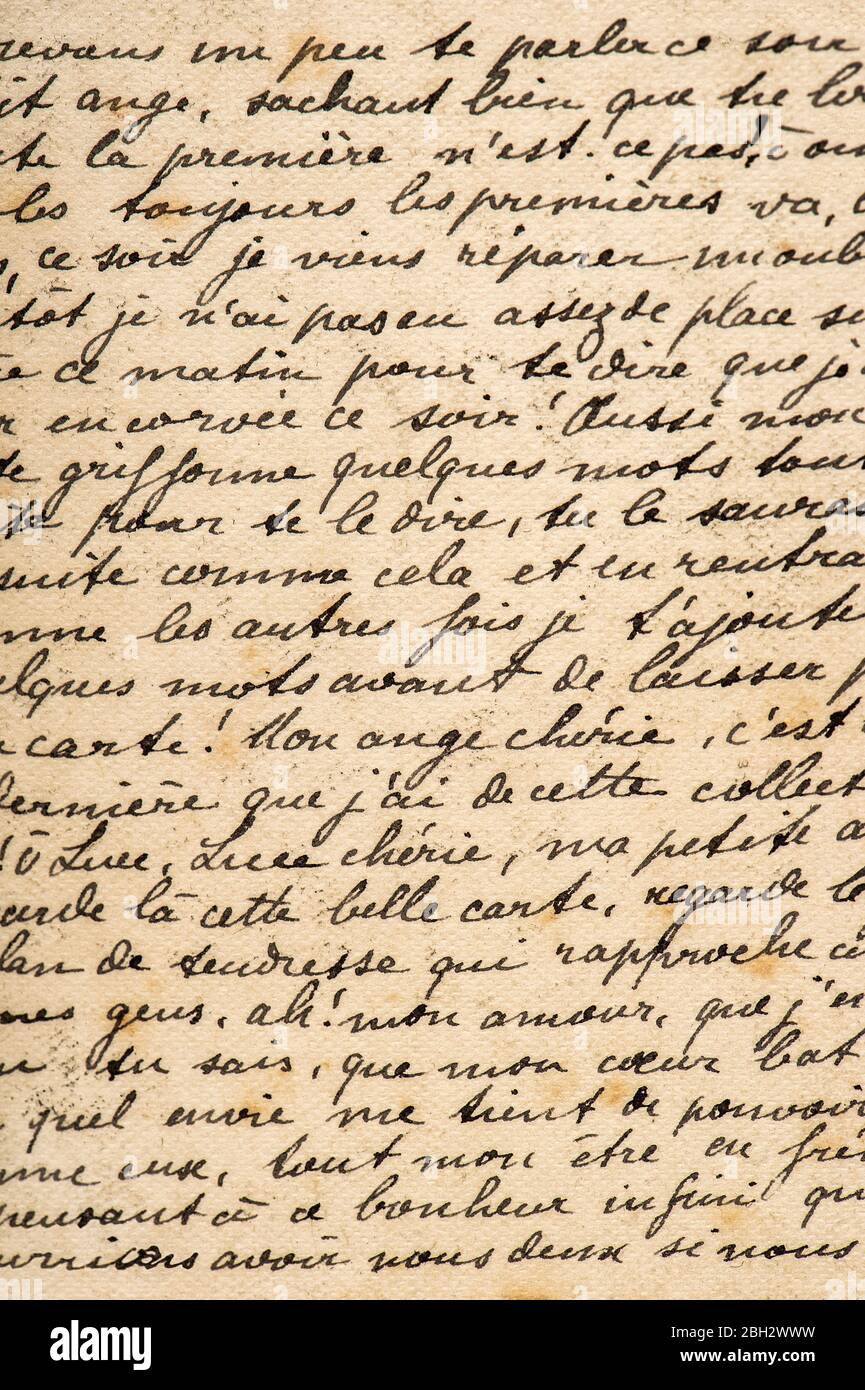 revans un peu te parler ce soir
it ange, sachant bien que tu
te la première n'est-ce pas, ô
les toujours les premières va,
, ce soir je viens réparer un oubl
tôt je n'ai pas eu assez de place su
e ce matin pour te dire que j'
r en corvée ce soir! Aussi mon
te griffonne quelques mots tou
te pour te le dire, tu le sauras
suite comme cela et en rentra
mme les autres fois je t'ajoute
elques mots avant de laisser p
a carte! Mon ange chérie, c'est
dernière que j'ai de cette collect
! ô Luce, Luce chérie, ma petite a
arde là cette belle carte, regarde le
lan de tendresse qui rapproche c
nes gens, ah! mon amour, que j'en
n tu sais, que mon cœur bat
quel envie me tient de pouvoir
mme eux, tout mon être en fré
pensant à ce bonheur infini qu
urrions avoir nous deux si nous
alamy
Image ID: 2BH2WWW
www.alamy.com